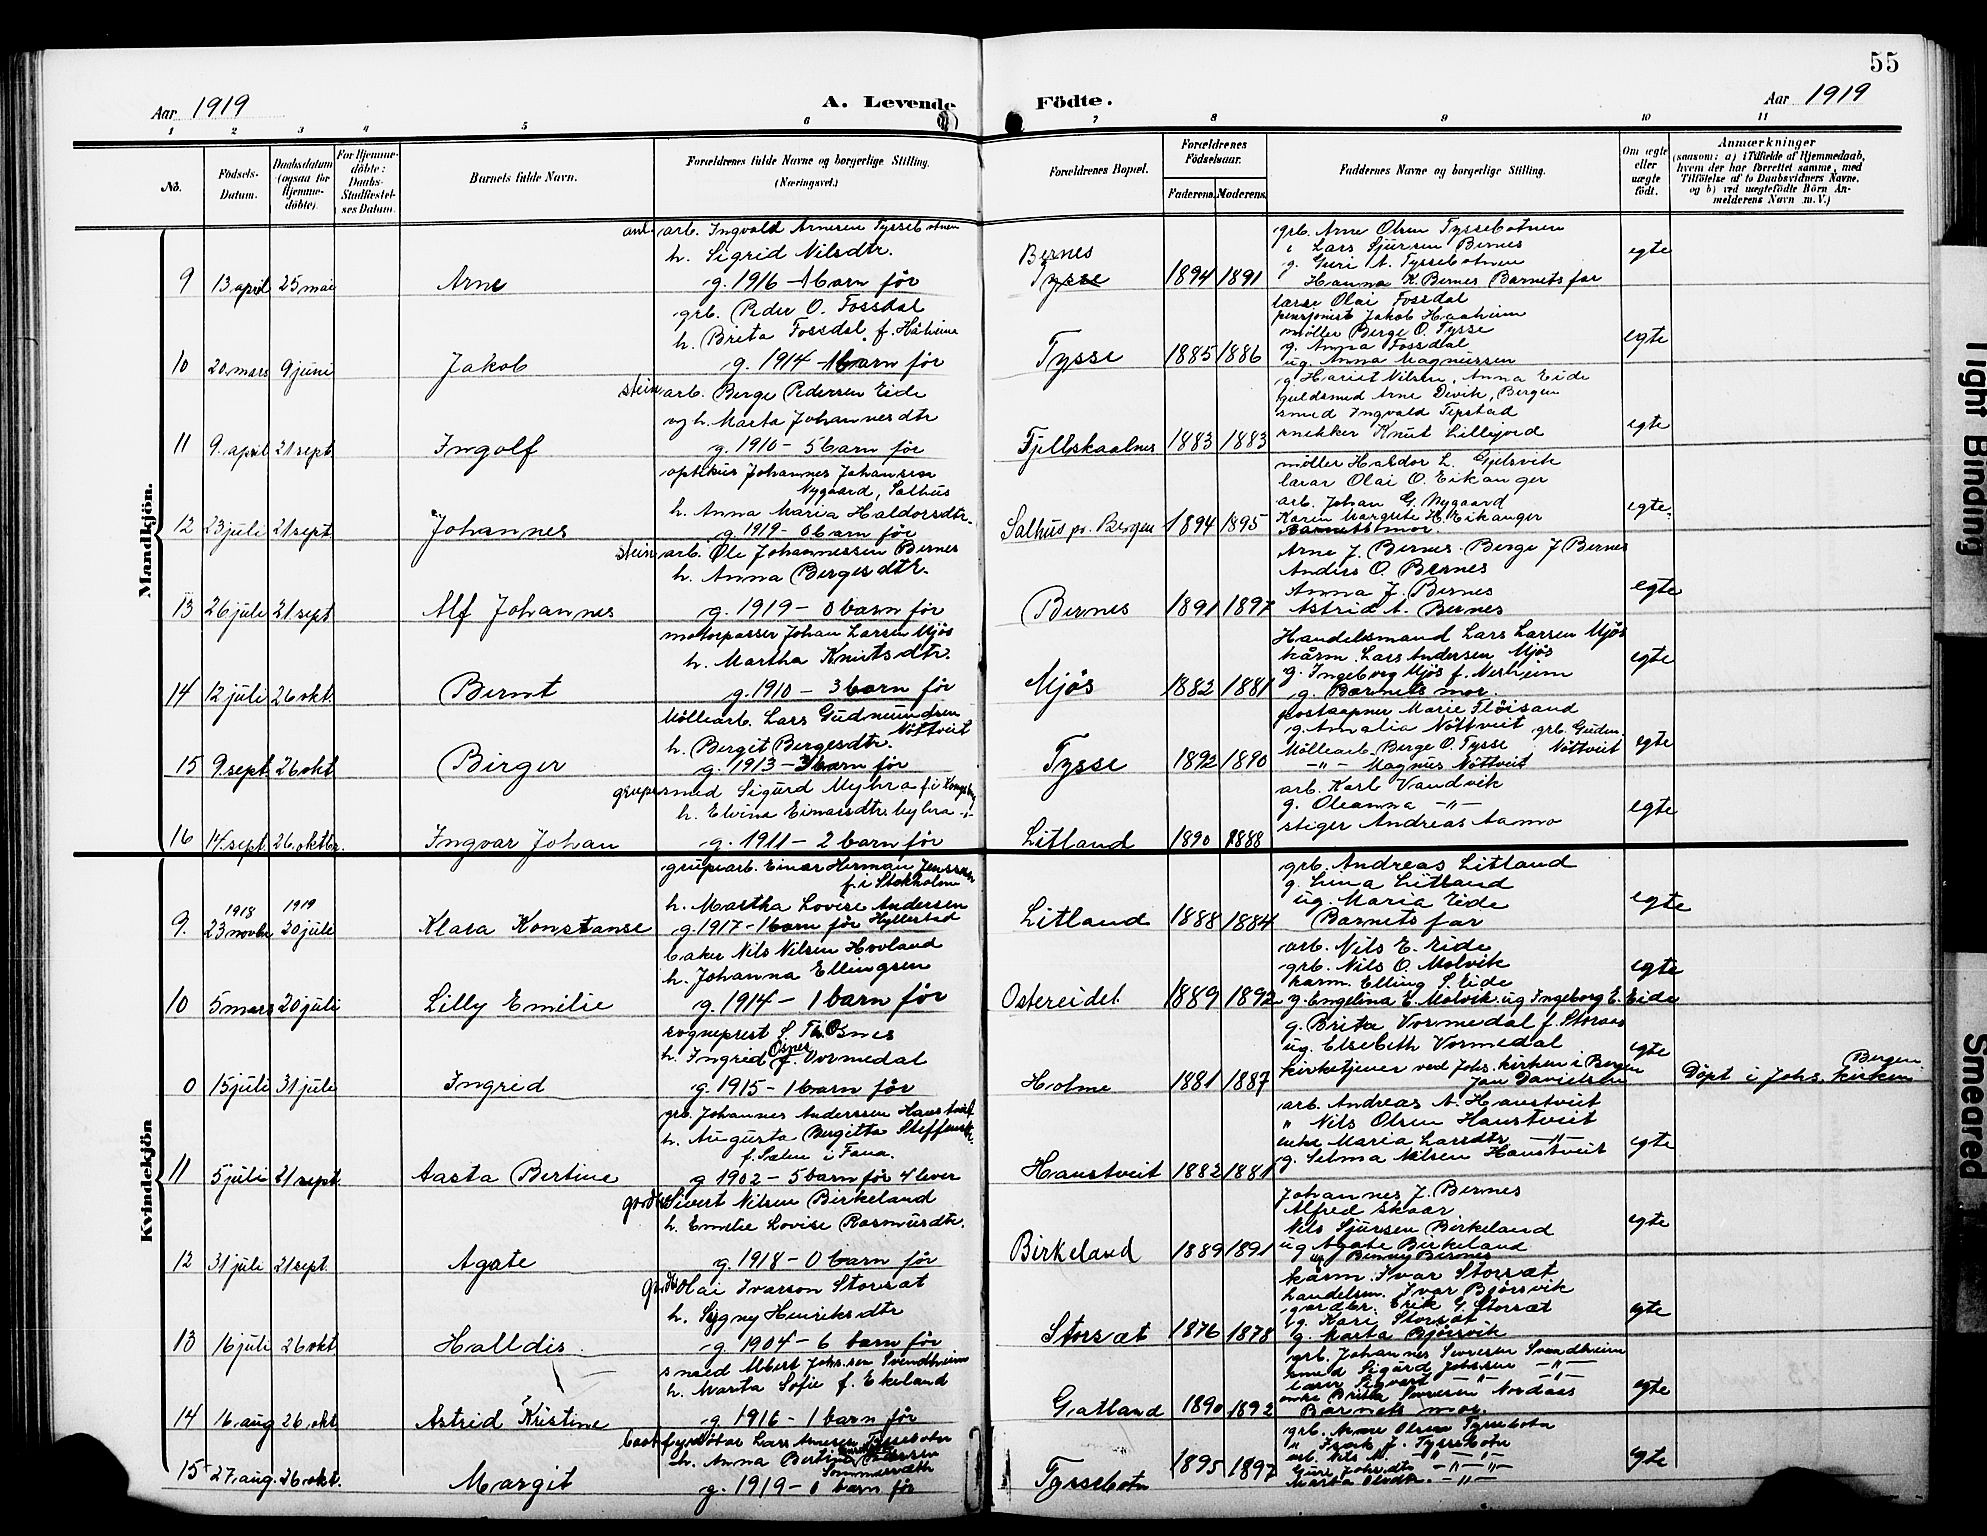 55
Aar 1919 A. Levende Födte. Aar 1919
1 2 3 4 5 6 7 8 8 9 10 11
No.
Födsels-Datum.
Daabsdatum (ogsaa for Hjemmedöbte).
For Hjemmedöbte: Daabs-Stadfæstelses Datum.
Barnets fulde Navn.
Forældrenes fulde Navne og borgerlige Stilling. (Næringsvei.)
Forældrenes Bopæl.
Forældrenes Födselsaar.
Faderens. Moderens.
Faddernes Navne og borgerlige Stilling.
Om ægte eller uægte födt.
Anmærkninger
(saasom: a) i Tilfælde af Hjemmedaab, hvem der har forrettet samme, med Tilföielse af to Daabsvidners Navne, og b) ved uægtefödte Börn Anmelderens Navn m. V.)
Mandkjön.
arb. Ingvald Arnesen Tyssebotnen
h. Sigrid Nilsdtr.
9 13 april 25 mai Arne g. 1916 - 1 barn før
Bernes
Tysse 1894 1891
grb. Arne Olsen Tyssebotnen
" Lars Sjursen Bernes
g. Guri A. Tyssebotnen
Hanna K. Bernes Barnets far
egte
grb. Peder O. Fossdal
h. Brita Fossdal f. Håheim
10 20 mars 9 juni Jakob g. 1914 - 1 barn før
Tysse 1885 1886
lærer Olai Fossdal
pensjonist Jakob Haaheim
møller Berge O. Tysse
g. Anna Fossdal
ug. Anna Magnussen
egte
steinarb. Berge Pedersen Eide
h. Marta Johannesdtr
11 9. april 21 sept Ingolf g. 1910 - 5 barn før
Fjellskaalnes 1883 1883
g. Harist Nilsen, Anna Eide
guldsmed Arne Devik, Bergen
smed Ingvald Tepstad
snekker Knut Lillejord
egte
optikus Johannes Johansen
Nygaard, Salhus
h. Anna Maria Haldorsdtr.
12 23 juli 21 sept Johannes g. 1919 - 0 barn før
Salhus pr. Bergen 1894 1895
møller Haldor L. Gjelsvik
lærar Olai O. Eikanger
arb. Johan G. Nygaard
Karen Margrete H. Eikanger
Barnets mor
egte
steinarb. Ole Johannessen Bernes
h. Anna Bergesdtr.
13 26 juli 21 sept Alf Johannes g. 1919 - 0 barn før
Bernes 1891 1897
Arne J. Bernes. Berge J Bernes
Anders O. Bernes
Anna J. Bernes
Astrid A. Bernes
egte
motorpasser Johan Larsen Mjøs
h. Martha Knutsdtr.
14 12 juli 26 okt. Bernt g. 1910 - 3 barn før
Mjøs 1882 1881
Handelsmand Lars Larsen Mjøs
kårm. Lars Andersen Mjøs
g. Ingeborg Mjøs f. Nesheim
g. Barnets mor.
egte
Møllearb. Lars Gudmundsen
Nöttveit
h. Bergit Bergesdtr.
15 9. sept. 26 okt Birger g. 1913 - 3 barn før
Tysse 1892 1890
postaapner Marie Fløisand
g. Amalia Nöttveit grb. Gudm.
Møllearb. Berge O. Tysse Nöttveit
-"- Magnus Nöttveit
egte
grupesmed Sigurd Myhra f. i Kongsberg
h. Elvine Einarsdtr. Myhra -"-
16 14. sept. 26. oktbr. Ingvar Johan g. 1911 - 2 barn før
Litland 1890 1888
arb. Karl Vandvik
g. Oleanna -"-
stiger Andreas Aamo
egte
Kvindekjön
grupearb. Einar Herman Jenssen
f. i Stokholm
h. Martha Lovise Andersen
1918 1919
9. 23 novbr 20 juli Klara Konstanse g. 1917 - 1 barn før Hyllestad
Litland 1888 1884
grb. Andreas Litland
g. Lina Litland
ug. Maria Eide
Barnets far
egte
baker Nils Nilsen Hovland
h. Johanna Ellingsen
10 5 mars 20 juli Lilly Emilie g. 1914 - 1 barn før
Ostereidet 1889 1892
arb. Nils E. Eide
grb. Nils O. Molvik
kårm. Elling S. Eide
g. Engelina E. Molvik. ug Ingeborg E. Eide
egte
sogneprest S. Th. Osnes
h. Ingrid Osnes f. Vormedal
0 15 juli 31 juli Ingrid g. 1915 - 1 barn før
Holme 1881 1887
g. Brita Vormedal f. Storaas
ug. Elsebeth Vormedal
kirketjener ved Johs. kirken i Bergen
Jan Danielsen
egte
Døpt i Johs. kirken Bergen
grb. Johannes Anderssen Haustveit
h. Augusta Bergitta Steffensdtr.
f. Sælen i Fana.
11 5 juli 21 sept. Aasta Bertine g 1902 - 5 barn før 4 lever
Haustveit 1882 1881
arb. Andreas A. Haustveit
" Nils Olsen Haustveit
enke Maria Larsdtr -"-
g. Selma Nilsen Haustveit
egte
grdbr. Sivert Nilsen Birkeland
h. Emelie Lovise Rasmusdtr.
12 31 juli 21 sept. Agate g. 1918 - 0 barn før
Birkeland 1889 1891
Johannes J. Bernes
Alfred Skaar
Nils Sjursen Birkeland
ug Agate Birkeland
ug Benny Bernes
egte
grdbr. Olai Ivarson Storsæt
h. Signy Henriksdtr
13 16 juli 26 okt Halldis g 1904 - 6 barn før
Storsæt 1876 1878
kårm. Ivar Storsæt
handelsm. Ivar Bjørsvik
gardbr. Erik G. Storsæt
g. Kari Storsæt
g. Marta Bjørsvik
egte
smed Albert Johssen Svendheim
h. Marta Sofie f. Ekeland
14 16. aug 26. okt Astrid Kristine g 1916 - 1 barn før
Gatland 1890 1892
grb. Johannes Severesen Svendheim
smed Sigurd Johssen -"-
lærer Sigvart -"- -"-
enke Britha Severesen Nordaas
Barnets mor.
egte
baatfyrbøter Lars Arnesen Tyssebotn
h. Anna Bertine
15 27. aug. 26 okt. Margit g. 1919 - 0 barn før
Tyssebotn 1895 1897
grb. Arne Olsen Tyssebotn
" Isak J. Tyssebotn
arb. Nils M. -"- -"-
Guri Johsdtr -"-
Marta -"-
egte
Tight Binding
Smeared